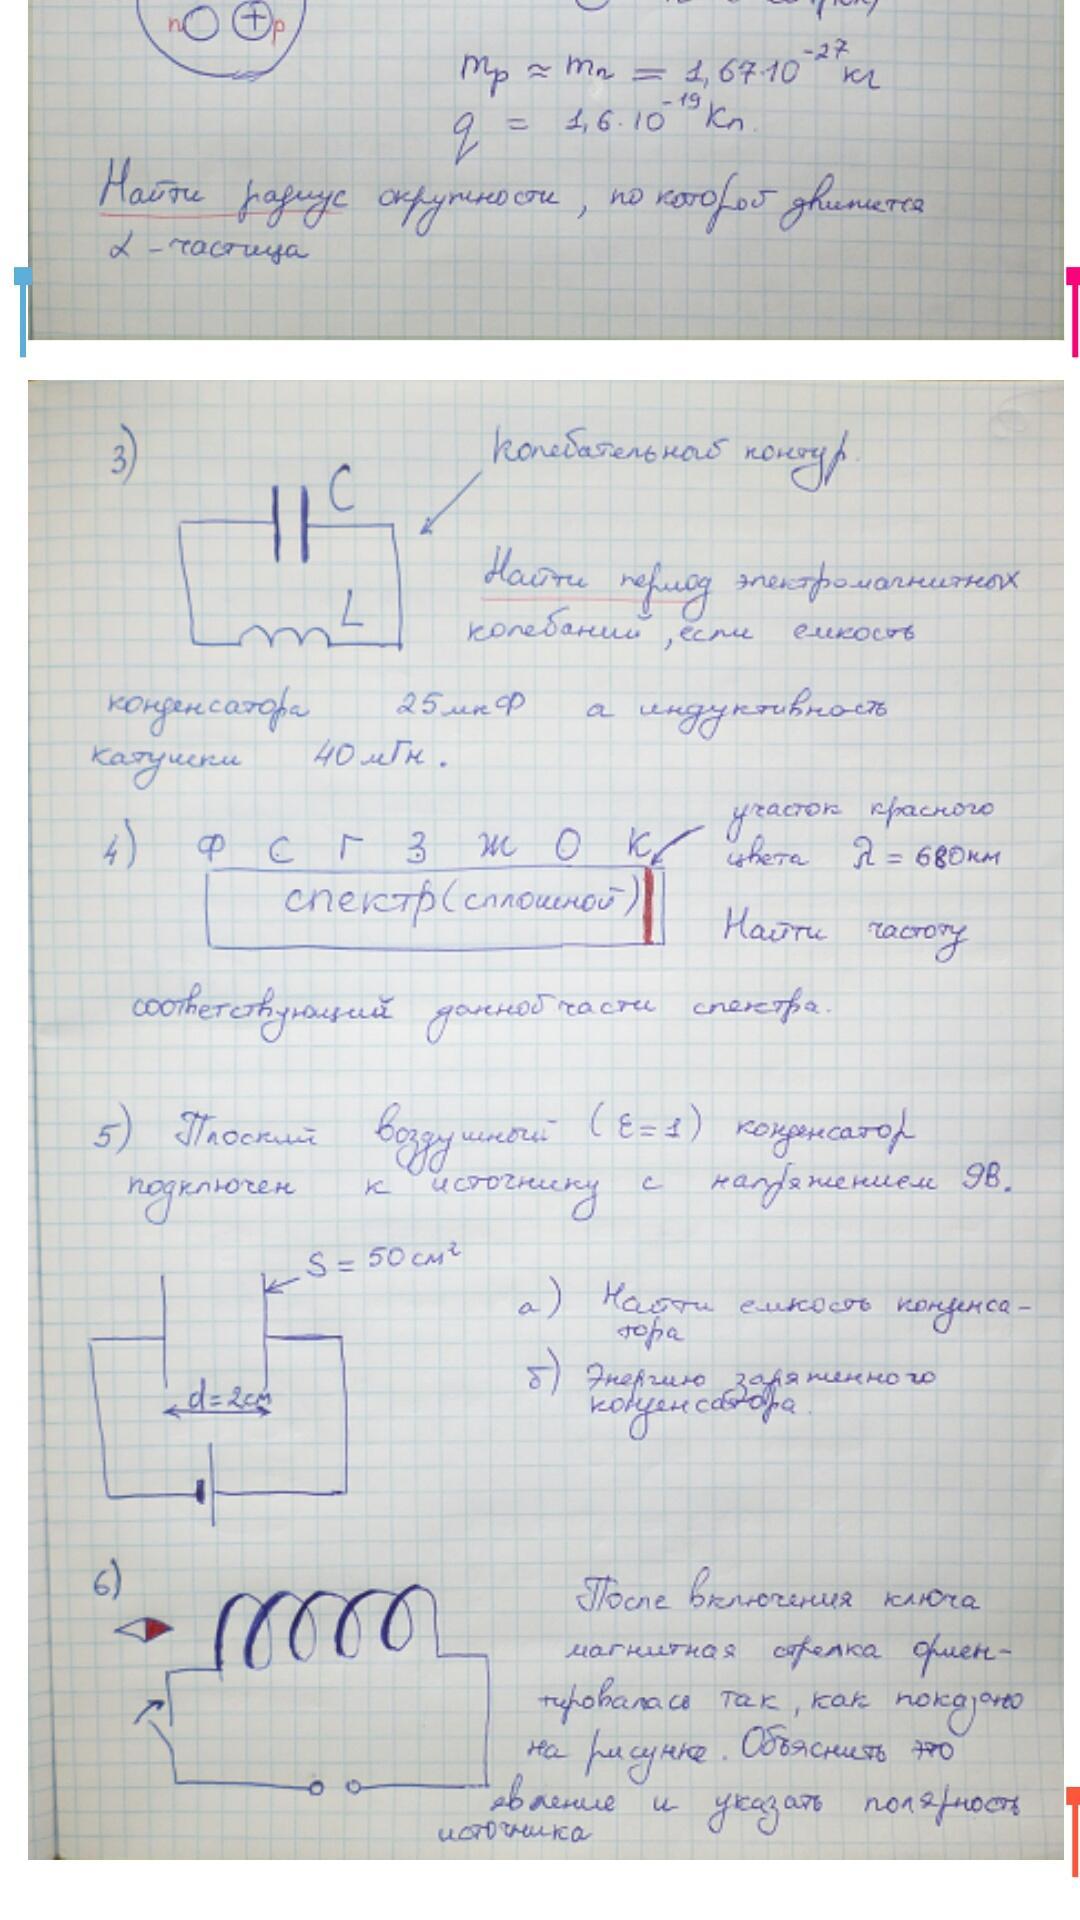 n + p
mp ≈ mn = 1,67·10⁻²⁷ кг
q = 1,6·10⁻¹⁹ Кл.
Найти радиус окружности, по которой движется
α - частица
3)
Колебательной контур.
C
L
Найти период электромагнитных
колебаний, если емкость
конденсатора 25 мкФ а индуктивность
катушки 40 мГн.
4) Ф С Г З Ж О К
участок красного
цвета λ = 680нм
спектр (сплошной)
Найти частоту
соответствующий данной части спектра.
5) Плоский воздушный (ε=1) конденсатор
подключен к источнику с напряжением 9В.
S = 50 см²
d=2см
а) Найти емкость конденса-
тора
б) Энергию заряженного
конденсатора.
6)
После включения ключа
магнитная стрелка ориен-
тировалась так, как показано
на рисунке. Объяснить это
явление и указать полярность
источника